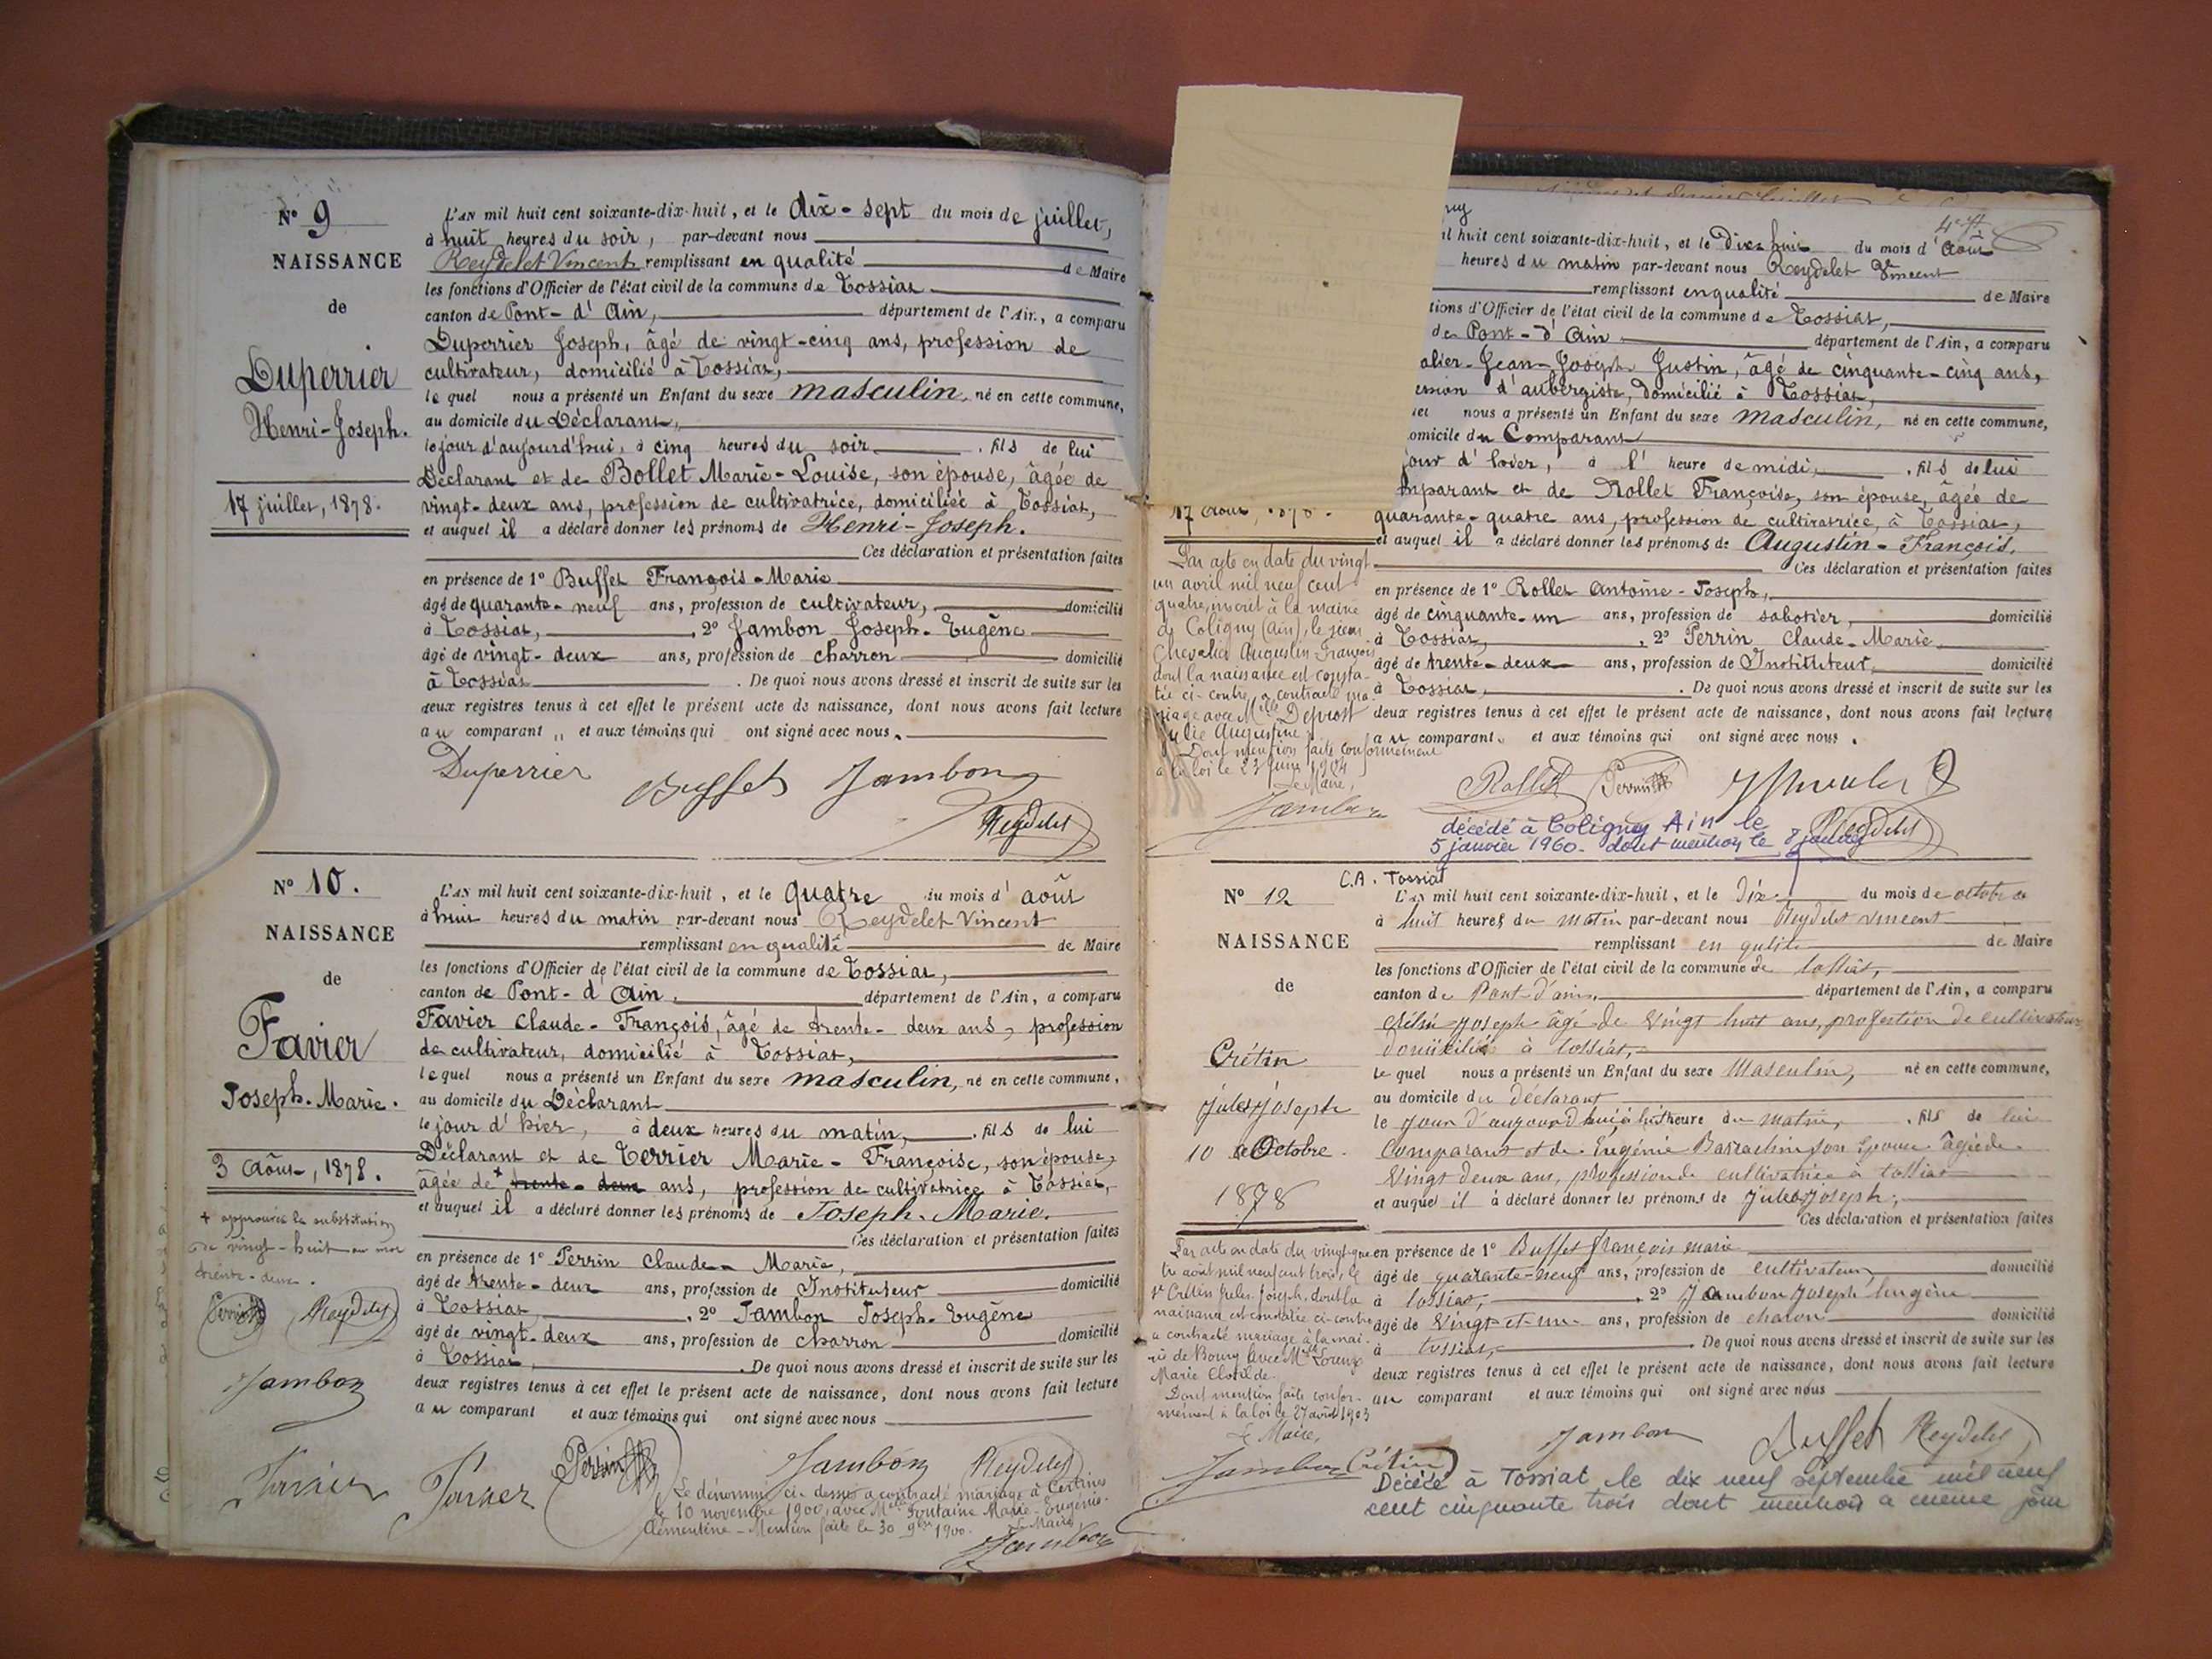 N° 9
NAISSANCE
de
Duperrier
Henri-Joseph.
17 juillet, 1878.
L'AN mil huit cent soixante-dix-huit, et le dix-sept du mois de juillet,
à huit heures du soir, par-devant nous
Reydelet Vincent remplissant en qualité de Maire
les fonctions d'Officier de l'état civil de la commune de Tossiat
canton de Pont-d'Ain, département de l'Ain, a comparu
Duperrier Joseph, âgé de vingt-cinq ans, profession de
cultivateur, domicilié à Tossiat,
lequel nous a présenté un Enfant du sexe masculin, né en cette commune,
au domicile du Déclarant,
le jour d'aujourd'hui, à cinq heures du soir, fils de lui
Déclarant et de Bollet Marie-Louise, son épouse, âgée de
vingt-deux ans, profession de cultivatrice, domiciliée à Tossiat,
et auquel il a déclaré donner les prénoms de Henri-Joseph.
Ces déclaration et présentation faites
en présence de 1° Buffet François-Marie
âgé de quarante-neuf ans, profession de cultivateur, domicilié
à Tossiat, 2° Jambon Joseph-Eugène
âgé de vingt-deux ans, profession de charron domicilié
à Tossiat. De quoi nous avons dressé et inscrit de suite sur les
deux registres tenus à cet effet le présent acte de naissance, dont nous avons fait lecture
au comparant „ et aux témoins qui ont signé avec nous.
Duperrier Buffet Jambon
Reydelet
N° 10.
NAISSANCE
de
Favier
Joseph-Marie.
3 Août, 1878.
+ approuvée la substitution
de vingt-huit au mot
trente-deux.
Perrin Reydelet
Jambon
L'AN mil huit cent soixante-dix-huit, et le quatre du mois d'août
à huit heures du matin par-devant nous Reydelet Vincent
remplissant en qualité de Maire
les fonctions d'Officier de l'état civil de la commune de Tossiat,
canton de Pont-d'Ain, département de l'Ain, a comparu
Favier Claude-François, âgé de trente-deux ans, profession
de cultivateur, domicilié à Tossiat,
lequel nous a présenté un Enfant du sexe masculin, né en cette commune,
au domicile du Déclarant
le jour d'hier, à deux heures du matin, fils de lui
Déclarant et de Terrier Marie-Françoise, son épouse,
âgée de + trente-deux ans, profession de cultivatrice à Tossiat,
et auquel il a déclaré donner les prénoms de Joseph-Marie.
Ces déclaration et présentation faites
en présence de 1° Perrin Claude-Marie,
âgé de trente-deux ans, profession de Instituteur domicilié
à Tossiat, 2° Jambon Joseph-Eugène
âgé de vingt-deux ans, profession de charron domicilié
à Tossiat, De quoi nous avons dressé et inscrit de suite sur les
deux registres tenus à cet effet le présent acte de naissance, dont nous avons fait lecture
au comparant et aux témoins qui ont signé avec nous
Favier Perrin Jambon Reydelet
Le dénommé ci-dessus a contracté mariage à Certines
le 10 novembre 1900, avec Mlle Fontaine Marie-Eugénie-
Clémentine - Mention faite le 30 9bre 1900. Le Maire,
Jambon
17 Août, 1878.
Par acte en date du vingt
un avril mil neuf cent
quatre, inscrit à la mairie
de Coligny (Ain), le sieur
Chevalier Augustin François
dont la naissance est consta-
tée ci-contre, a contracté ma
riage avec Mlle
Julie Augustine.
Dont mention faite conformément
à la loi le 23 juin 1904
Le Maire,
Jambon
il huit cent soixante-dix-huit, et le Dix-huit du mois d'août
heures du matin par-devant nous Reydelet Vincent
remplissant en qualité de Maire
tions d'Officier de l'état civil de la commune de Tossiat,
de Pont-d'Ain département de l'Ain, a comparu
alier-Jean-Joseph Justin, âgé de cinquante-cinq ans,
ession d'aubergiste, domicilié à Tossiat,
uel nous a présenté un Enfant du sexe masculin, né en cette commune,
omicile du Comparant
jour d'hier, à l'heure de midi, fils de lui
mparant et de Rollet Françoise, son épouse, âgée de
quarante-quatre ans, profession de cultivatrice, à Tossiat,
et auquel il a déclaré donner les prénoms de Augustin-François.
Ces déclaration et présentation faites
en présence de 1° Rollet Antoine-Joseph,
âgé de cinquante-un ans, profession de sabotier, domicilié
à Tossiat, 2° Perrin Claude-Marie
âgé de trente-deux ans, profession de Instituteur, domicilié
à Tossiat, De quoi nous avons dressé et inscrit de suite sur les
deux registres tenus à cet effet le présent acte de naissance, dont nous avons fait lecture
au comparant. et aux témoins qui ont signé avec nous.
Rollet Perrin
Reydelet
décédé à Coligny Ain le
5 janvier 1960. dont mention le 8 janvier
C.A. Tossiat
N° 12
NAISSANCE
de
Crétin
Jules Joseph
10 Octobre
1878
Par acte en date du vingt-qua
tre août mil neuf cent trois, le
sr Crétin Jules Joseph, dont la
naissance est constatée ci-contre
a contracté mariage à la mai-
rie de Bourg avec Mlle
Marie Clotilde.
Dont mention faite confor-
mément à la loi le 27 août 1903
Le Maire,
Jambon
L'AN mil huit cent soixante-dix-huit, et le Dix du mois de octobre
à huit heures du matin par-devant nous Reydelet vincent
remplissant en qulite de Maire
les fonctions d'Officier de l'état civil de la commune de tossiat,
canton de Pont-d'ain, département de l'Ain, a comparu
Crétin joseph âgé de vingt huit ans, profession de cultivateur
domicilié à tossiat,
lequel nous a présenté un Enfant du sexe Masculin, né en cette commune,
au domicile du déclarant
le jour d'aujourd'hui à heure du matin, fils de lui
Comparant et de Eugénie Barrachin son épouse âgée de
Vingt deux ans, profession de cultivatrice à tossiat
et auquel il à déclaré donner les prénoms de jules joseph,
Ces déclaration et présentation faites
en présence de 1° Buffet françois marie
âgé de quarante-neuf ans, profession de cultivateur, domicilié
à tossiat, 2° Jambon joseph Eugène
âgé de Vingt-et-un ans, profession de charon domicilié
à tossiat, De quoi nous avons dressé et inscrit de suite sur les
deux registres tenus à cet effet le présent acte de naissance, dont nous avons fait lecture
au comparant et aux témoins qui ont signé avec nous
Crétin Jambon Buffet Reydelet
Décédé à Tossiat le dix neuf septembre mil neuf
cent cinquante trois dont mention a meme jour